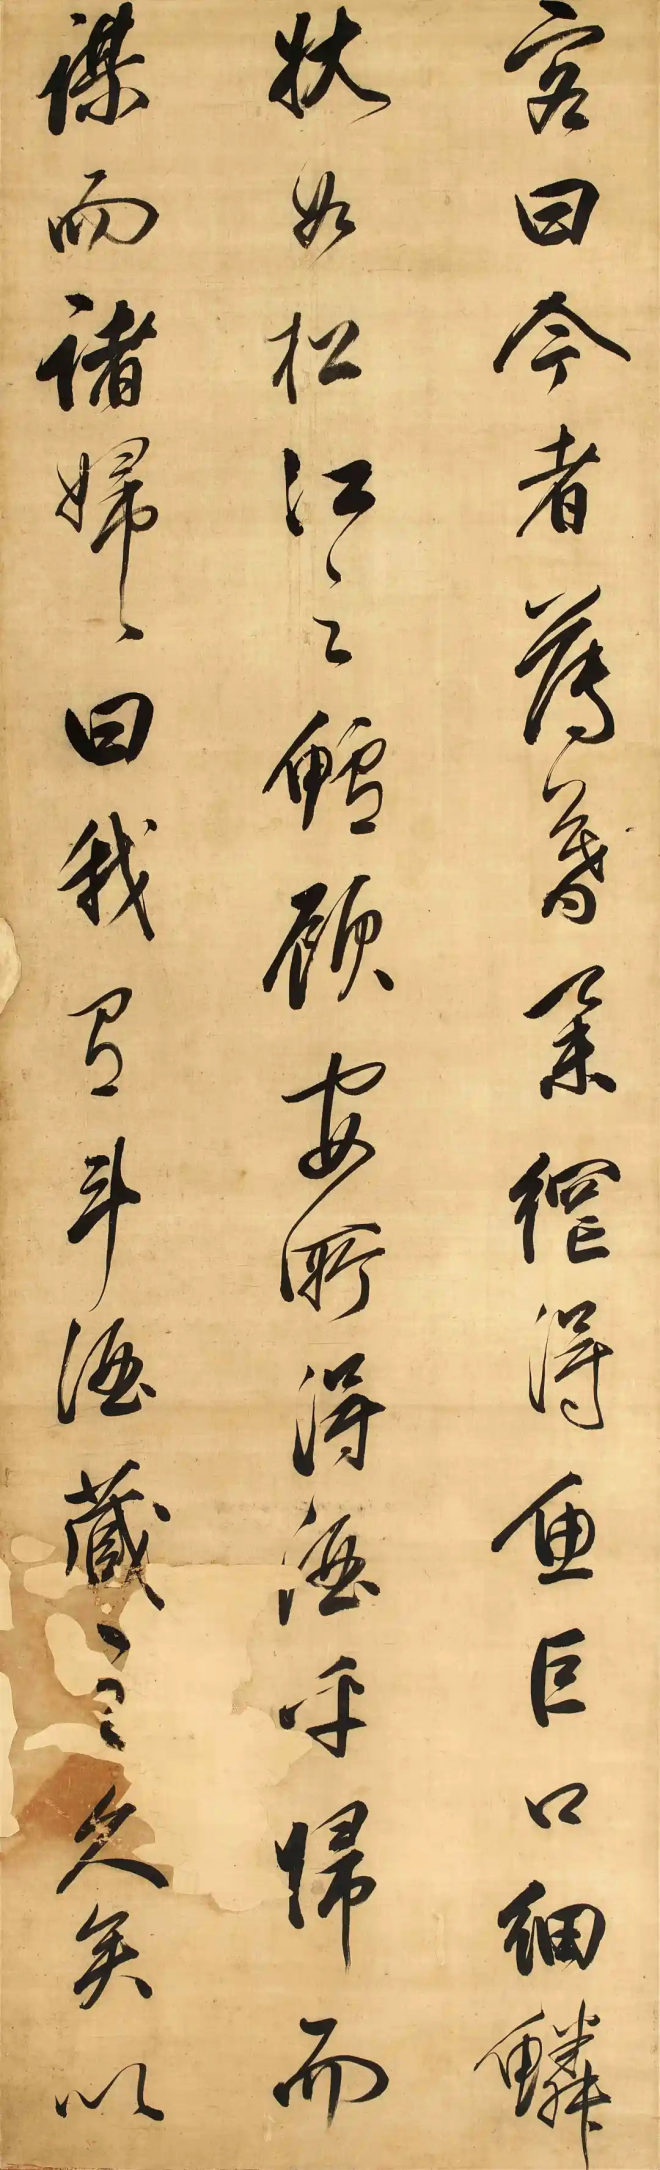 客曰今者薄暮舉網得魚巨口細鱗
狀如松江之鱸顧安所得酒乎歸而
謀而諸婦〻曰我有斗酒藏之久矣以